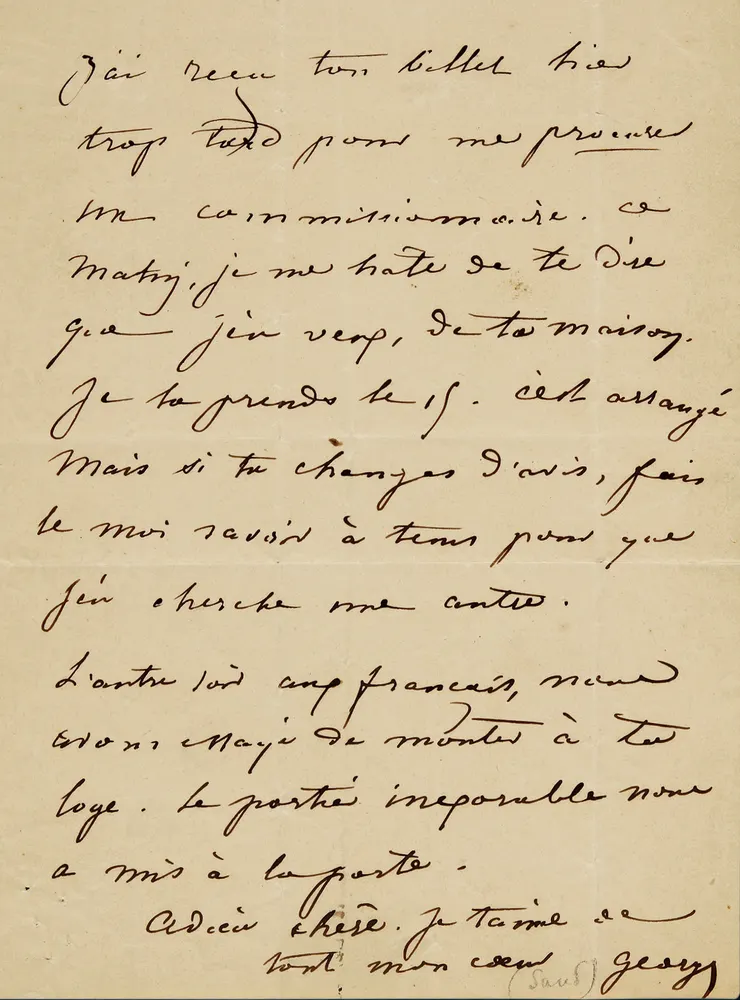 J'ai reçu ton billet hier
trop tard pour me procurer
un commissionnaire. ce
matin, je me hâte de te dire
que j'en veux, de ta maison.
Je la prends le 15. c'est arrangé
Mais si tu changes d'avis, fais
le moi savoir à tems pour que
j'en cherche une autre.
L'autre soir aux français, nous
avons essayé de monter à ta
loge. Le portier inexorable nous
a mis à la porte.
Adieu chère. Je t'aime de
tout mon cœur George
(Sand)